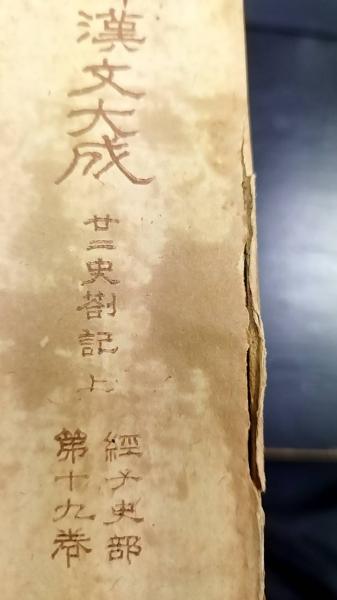 漢文大成
廿二史剳記 上
經子史部
第十九卷